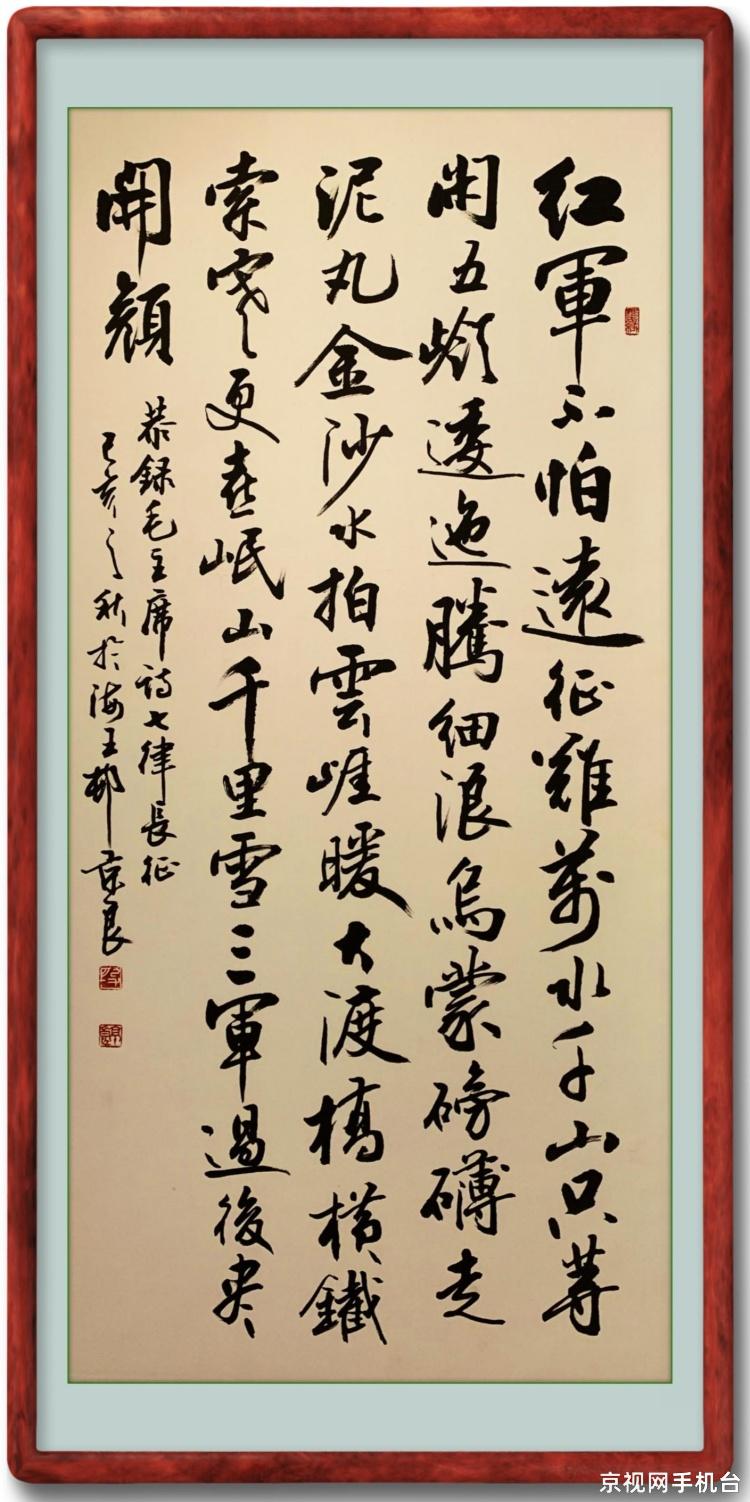 紅軍不怕遠征難萬水千山只等
閑五嶺逶迤騰細浪烏蒙磅礴走
泥丸金沙水拍雲崖暖大渡橋橫鐵
索寒更喜岷山千里雪三軍過後盡
開顏
恭録毛主席詩七律長征
己亥之秋於海王邨京良
京视网手机台